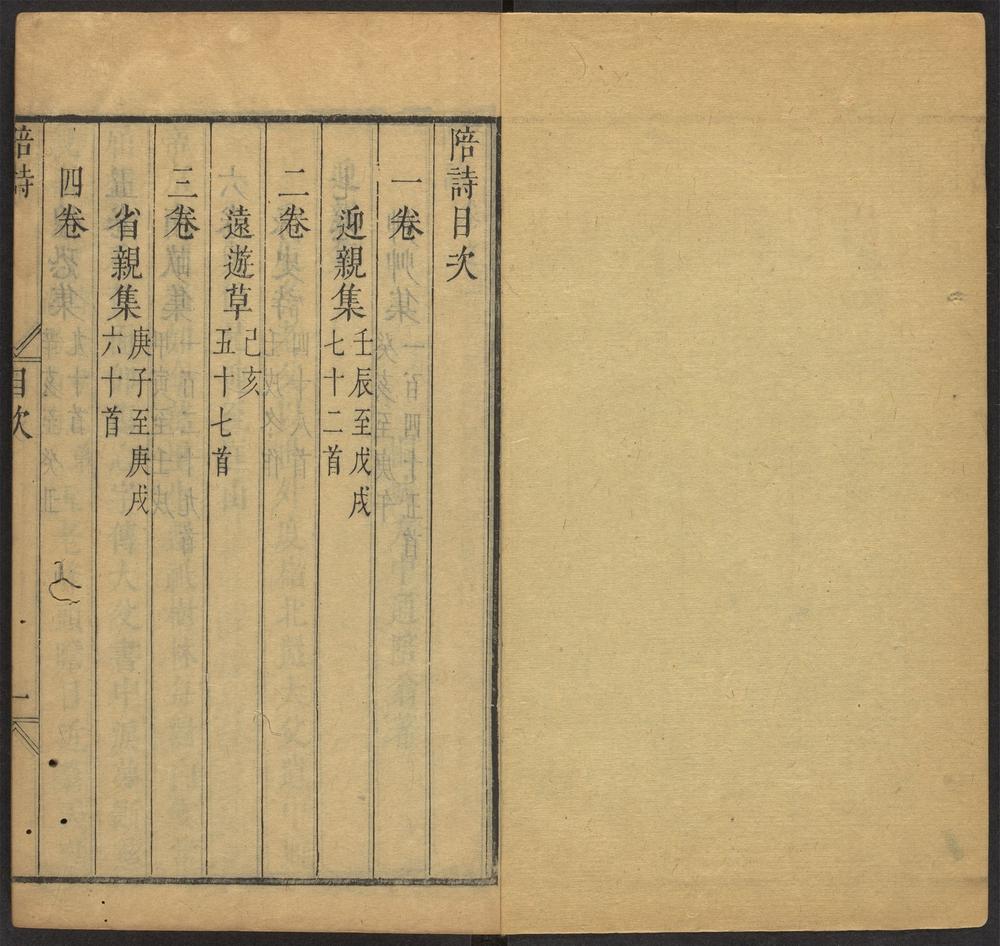 陪詩目次
一卷
迎親集 壬辰至戊戌 七十二首
二卷
遠遊草 己亥 五十七首
三卷
省親集 庚子至庚戌 六十首
四卷
陪詩 目次 一